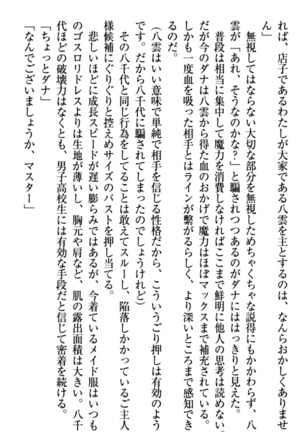 れば、店子であるわたしが大家である八雲を主とするのは、なんらおかしくありませ
ん」
　無視してはならない大切な部分を無視しためちゃくちゃな説得にもかかわらず、八
雲が「あれ、そうなのかな？」と騙されつつあるのがダナにははっきりと見えた。
　普段は相当に集中して魔力を消費しなければここまで鮮明に他人の思考は読めない。
だが今のダナは八雲から得た血のおかげで魔力はほぼマックスまで補充されている。
しかも一度血を吸った相手とはラインが繋がるらしく、より深いところまで感知でき
るのだ。
（八雲はいい意味で単純で相手を信じる性格だから、こういうごり押しは有効のよう
です。だから八千代に騙されてしまったのでしょうけれど）
　その八千代と同じ行為をしてることは敢えてスルーし、陥落しかかっているご主人
様候補にぐりぐりと控えめサイズのバストを押し当てる。
　悲しいほどに成長スピードが遅い膨らみではあるが、今着ているメイド服はいつも
のゴスロリドレスよりは生地が薄いし、胸元や肩など、肌の露出面積は大きい。八千
代ほどの破壊力はなくとも、男子高校生には有効な手段だと信じて密着を続ける。
「ちょっとダナ」
「なんでございましょうか、マスター」